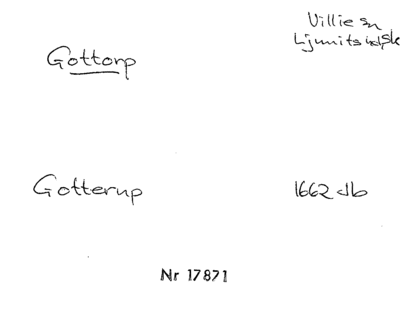 Gottorp
Villie sn
Ljunits hd, Sk
Gotterup
1662 Jb
Nr 17871